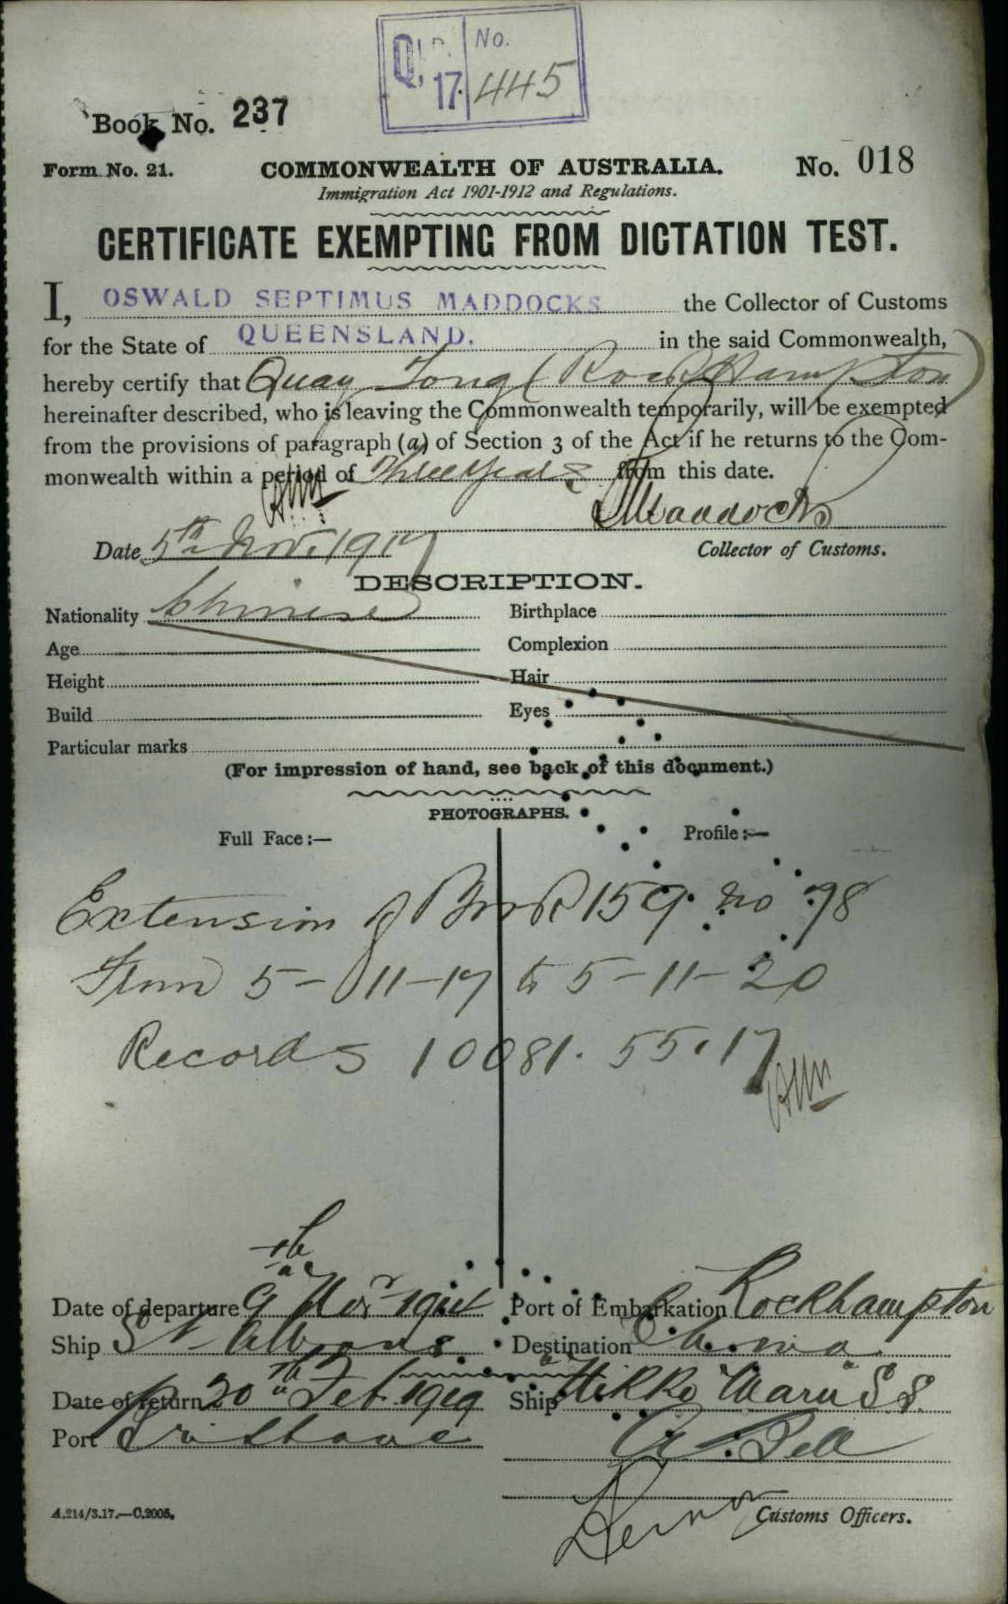 No.
17. 445
Book No. 237
Form No. 21. COMMONWEALTH OF AUSTRALIA. No. 018
Immigration Act 1901-1912 and Regulations.
CERTIFICATE EXEMPTING FROM DICTATION TEST.
I, OSWALD SEPTIMUS MADDOCKS the Collector of Customs
for the State of QUEENSLAND. in the said Commonwealth,
hereby certify that Quay Tong (Rockhampton)
hereinafter described, who is leaving the Commonwealth temporarily, will be exempted
from the provisions of paragraph (a) of Section 3 of the Act if he returns to the Com-
monwealth within a period of Three Years from this date.
Maddocks
Date 5th Nov. 1917 Collector of Customs.
DESCRIPTION.
Nationality Chinese Birthplace
Age Complexion
Height Hair
Build Eyes
Particular marks
(For impression of hand, see back of this document.)
PHOTOGRAPHS.
Full Face:— Profile:—
Extension of Book 159. No 98
From 5-11-17 to 5-11-20
Records 10081. 55.17
Date of departure 9th Nov 1914 Port of Embarkation Rockhampton
Ship St Albans Destination China
Date of return 20th Feb. 1919 Ship "Nikko Maru" S.S.
Port Brisbane
Bell
Customs Officers.
A.214/3.17.—C.2005.